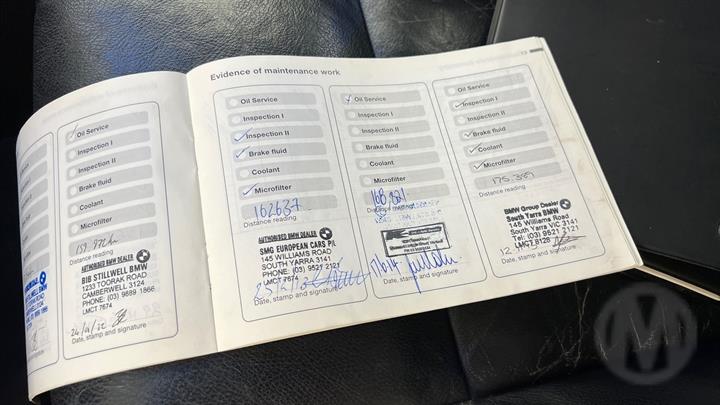 Oil Service
Inspection I
Inspection II
Brake fluid
Coolant
Microfilter
Distance reading
AUTHORISED BMW DEALER
BIB STILLWELL BMW
1233 TOORAK ROAD
CAMBERWELL 3124
PHONE: (03) 9889 1866
LMCT 7674
Date, stamp and signature
Evidence of maintenance work
Oil Service
Inspection I
Inspection II
Brake fluid
Coolant
Microfilter
162637
Distance reading
AUTHORISED BMW DEALER
SMG EUROPEAN CARS P/L
145 WILLIAMS ROAD
SOUTH YARRA 3141
PHONE: (03) 9521 2121
LMCT 7674
Date, stamp and signature
Oil Service
Inspection I
Inspection II
Brake fluid
Coolant
Microfilter
168,821
Distance reading
Date, stamp and signature
Oil Service
Inspection I
Inspection II
Brake fluid
Coolant
Microfilter
Distance reading
BMW Group Dealer
South Yarra BMW
145 Williams Road
South Yarra VIC 3141
Tel: (03) 9521 2121
LMCT 8125
Date, stamp and signature
M